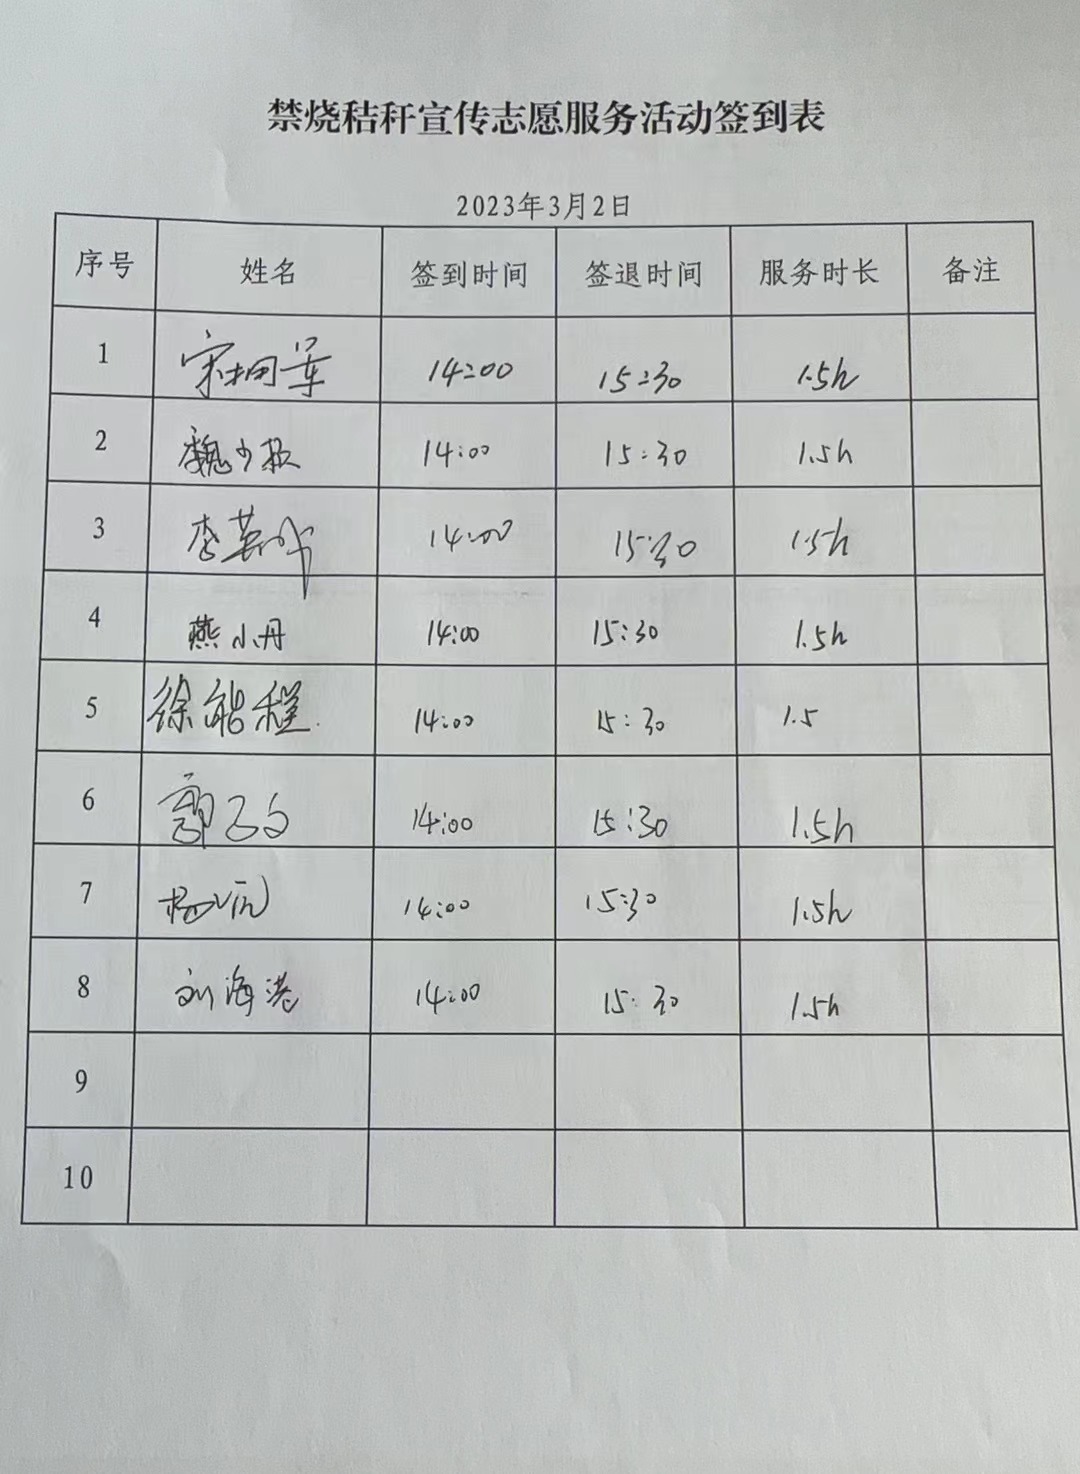 禁烧秸秆宣传志愿服务活动签到表
2023年3月2日
序号 姓名 签到时间 签退时间 服务时长 备注
1 宋拥军 14:00 15:30 1.5h
2 魏少 14:00 15:30 1.5h
3 李英 14:00 15:30 1.5h
4 燕小丹 14:00 15:30 1.5h
5 徐能程 14:00 15:30 1.5
6 郭 14:00 15:30 1.5h
7 杨 14:00 15:30 1.5h
8 刘海港 14:00 15:30 1.5h
9
10